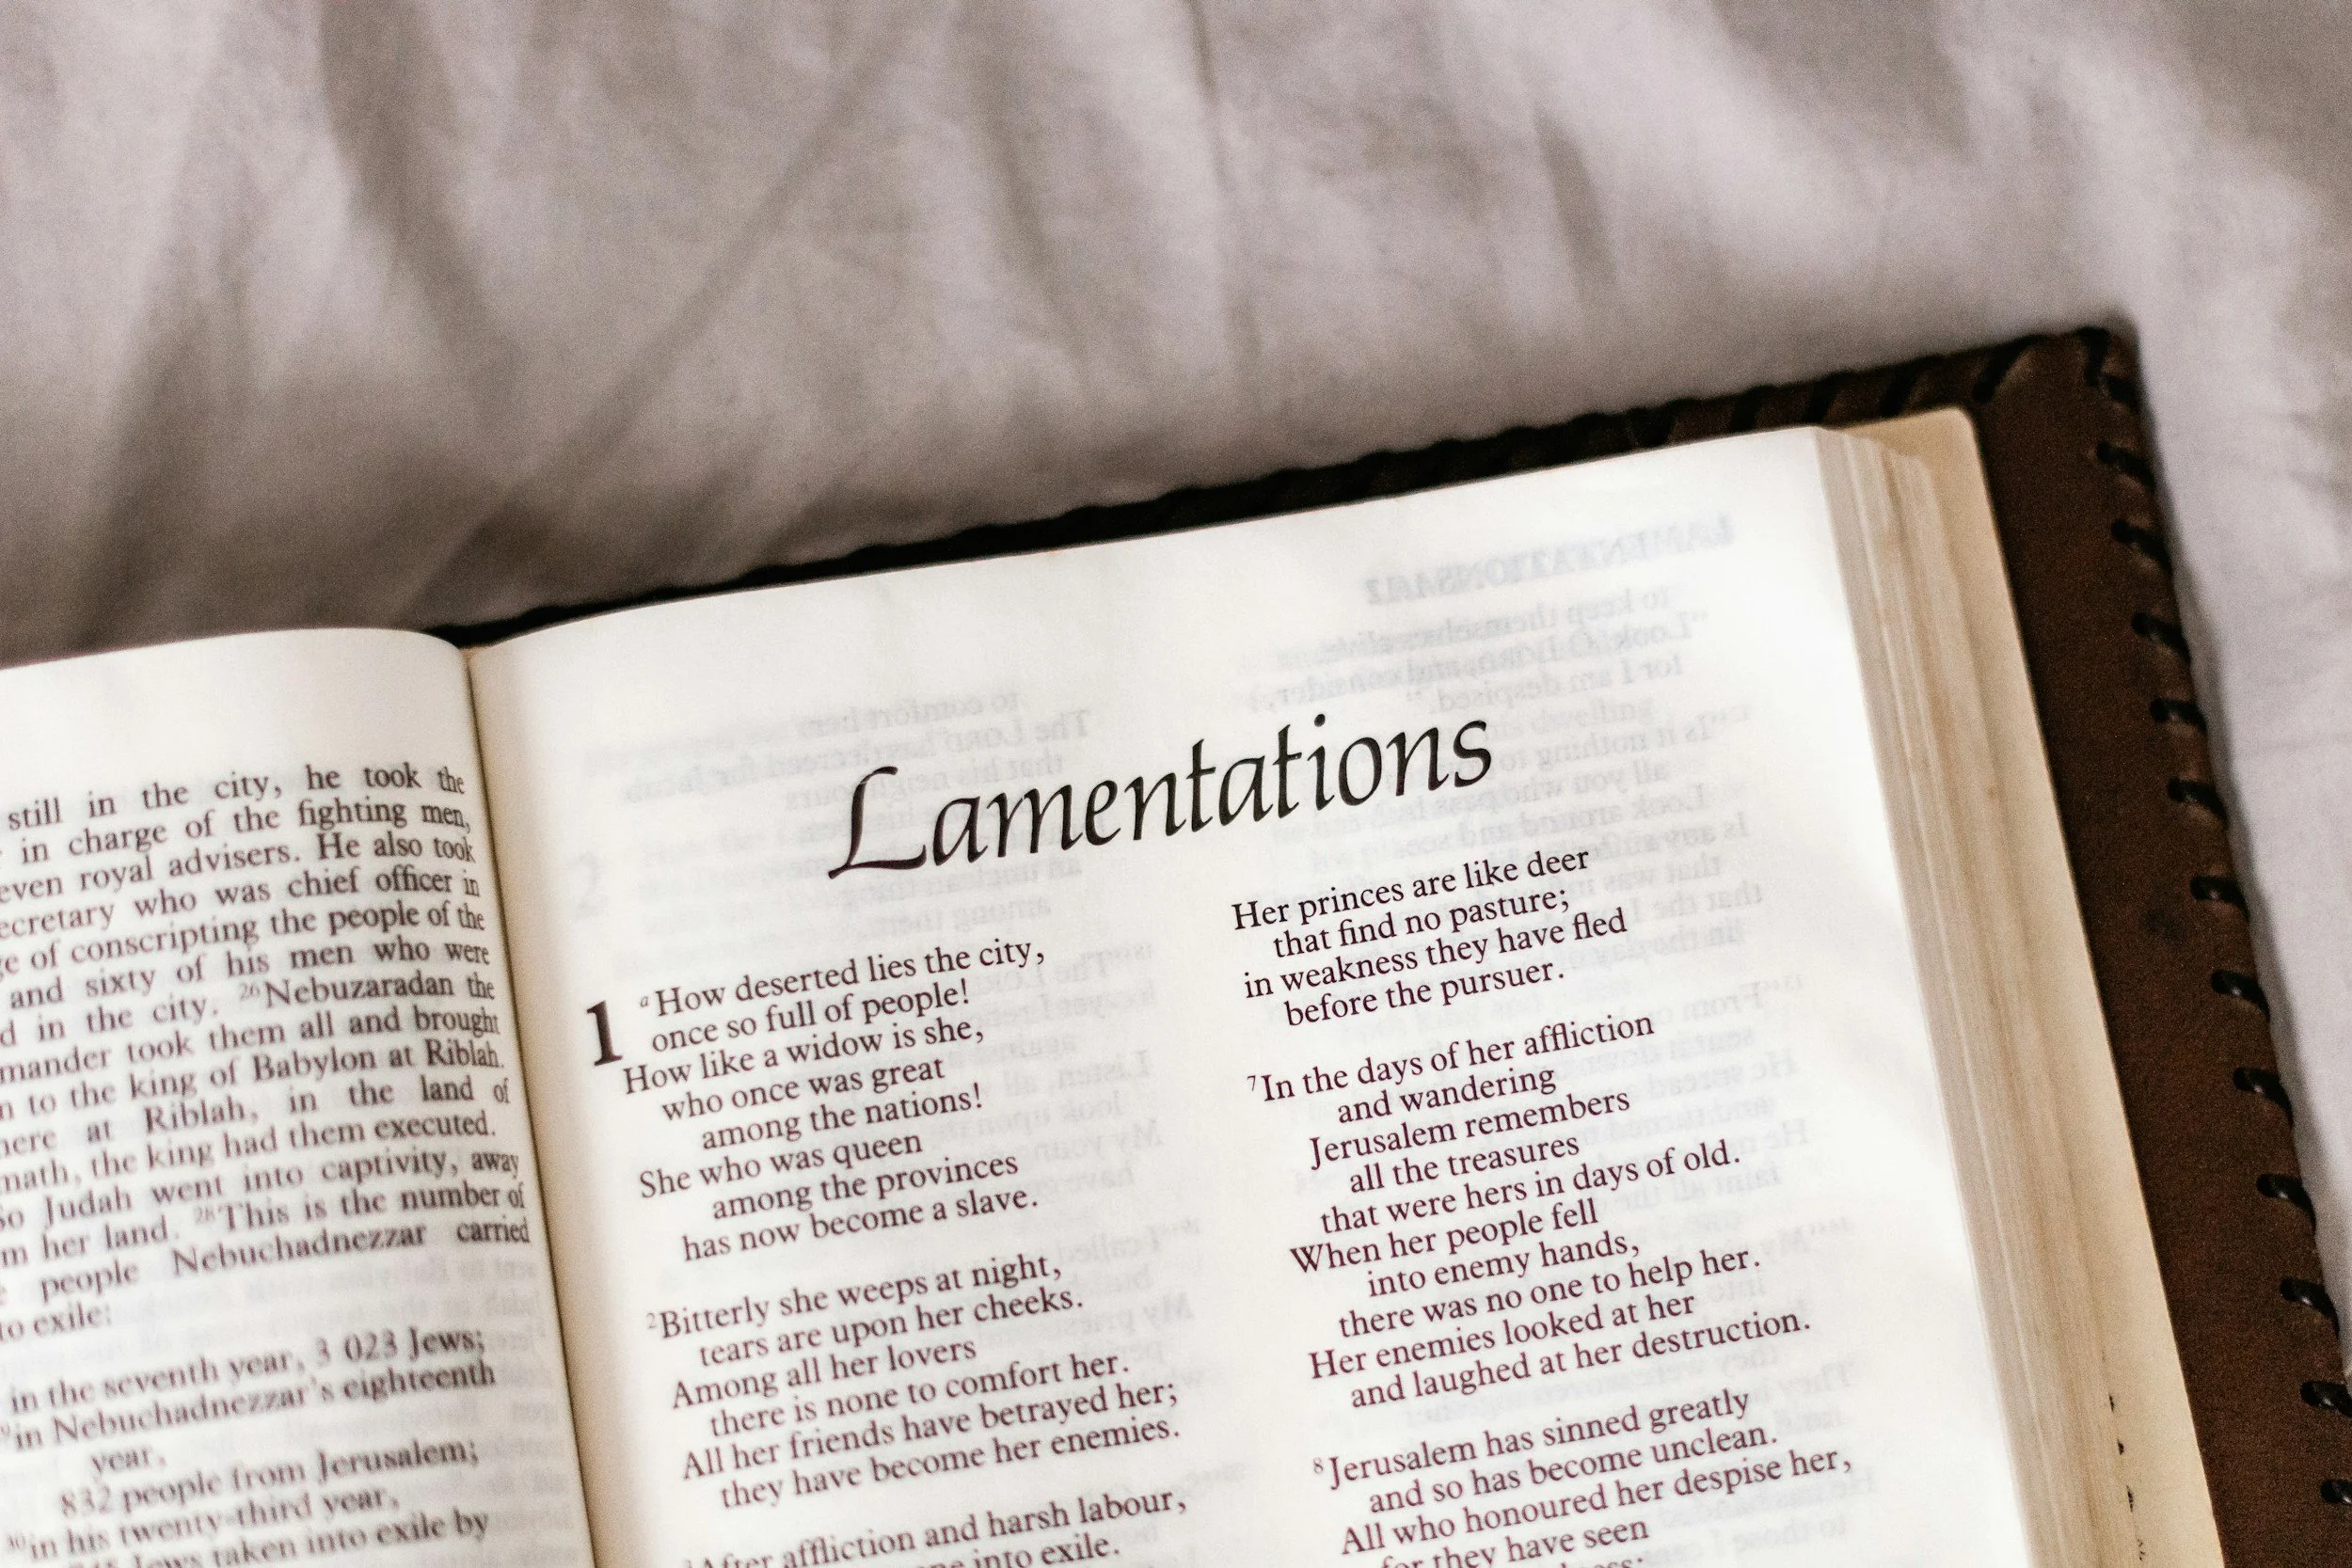 still in the city, he took the
in charge of the fighting men,
royal advisers. He also took
who was chief officer in
of conscripting the people of the
and sixty of his men who were
in the city. 26Nebuzaradan the
took them all and brought
to the king of Babylon at Riblah.
at Riblah, in the land of
the king had them executed.
Judah went into captivity, away
her land. 28This is the number of
people Nebuchadnezzar carried
exile:
in the seventh year, 3 023 Jews;
in Nebuchadnezzar's eighteenth
year,
832 people from Jerusalem;
30in his twenty-third year,
Jews taken into exile by
Lamentations
1 aHow deserted lies the city,
once so full of people!
How like a widow is she,
who once was great
among the nations!
She who was queen
among the provinces
has now become a slave.
2Bitterly she weeps at night,
tears are upon her cheeks.
Among all her lovers
there is none to comfort her.
All her friends have betrayed her;
they have become her enemies.
3After affliction and harsh labour,
into exile.
Her princes are like deer
that find no pasture;
in weakness they have fled
before the pursuer.
7In the days of her affliction
and wandering
Jerusalem remembers
all the treasures
that were hers in days of old.
When her people fell
into enemy hands,
there was no one to help her.
Her enemies looked at her
and laughed at her destruction.
8Jerusalem has sinned greatly
and so has become unclean.
All who honoured her despise her,
for they have seen